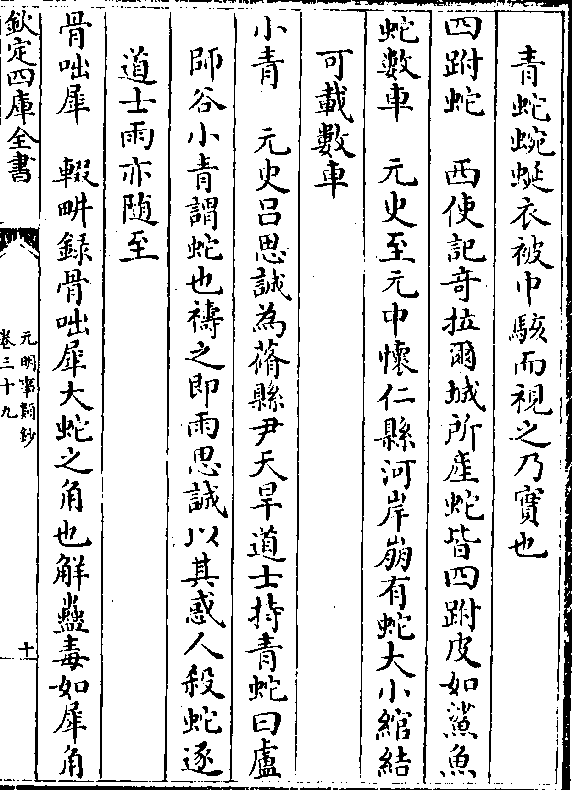 青蛇蜿蜒衣被巾駭而視之乃寳也
四跗蛇　西使記竒拉爾城所産蛇皆四跗皮如鯊魚
蛇數車　元史至元中懷仁縣河岸崩有蛇大小綰結
可載數車
小青　元史吕思誠為蓨縣尹天旱道士持青蛇曰盧
師谷小青謂蛇也禱之即雨思誠以其惑人殺蛇逐
道士雨亦随至
骨咄犀　輟畊録骨咄犀大蛇之角也解蠱毒如犀角
欽定四庫全書
元明事類鈔
卷三十九
十